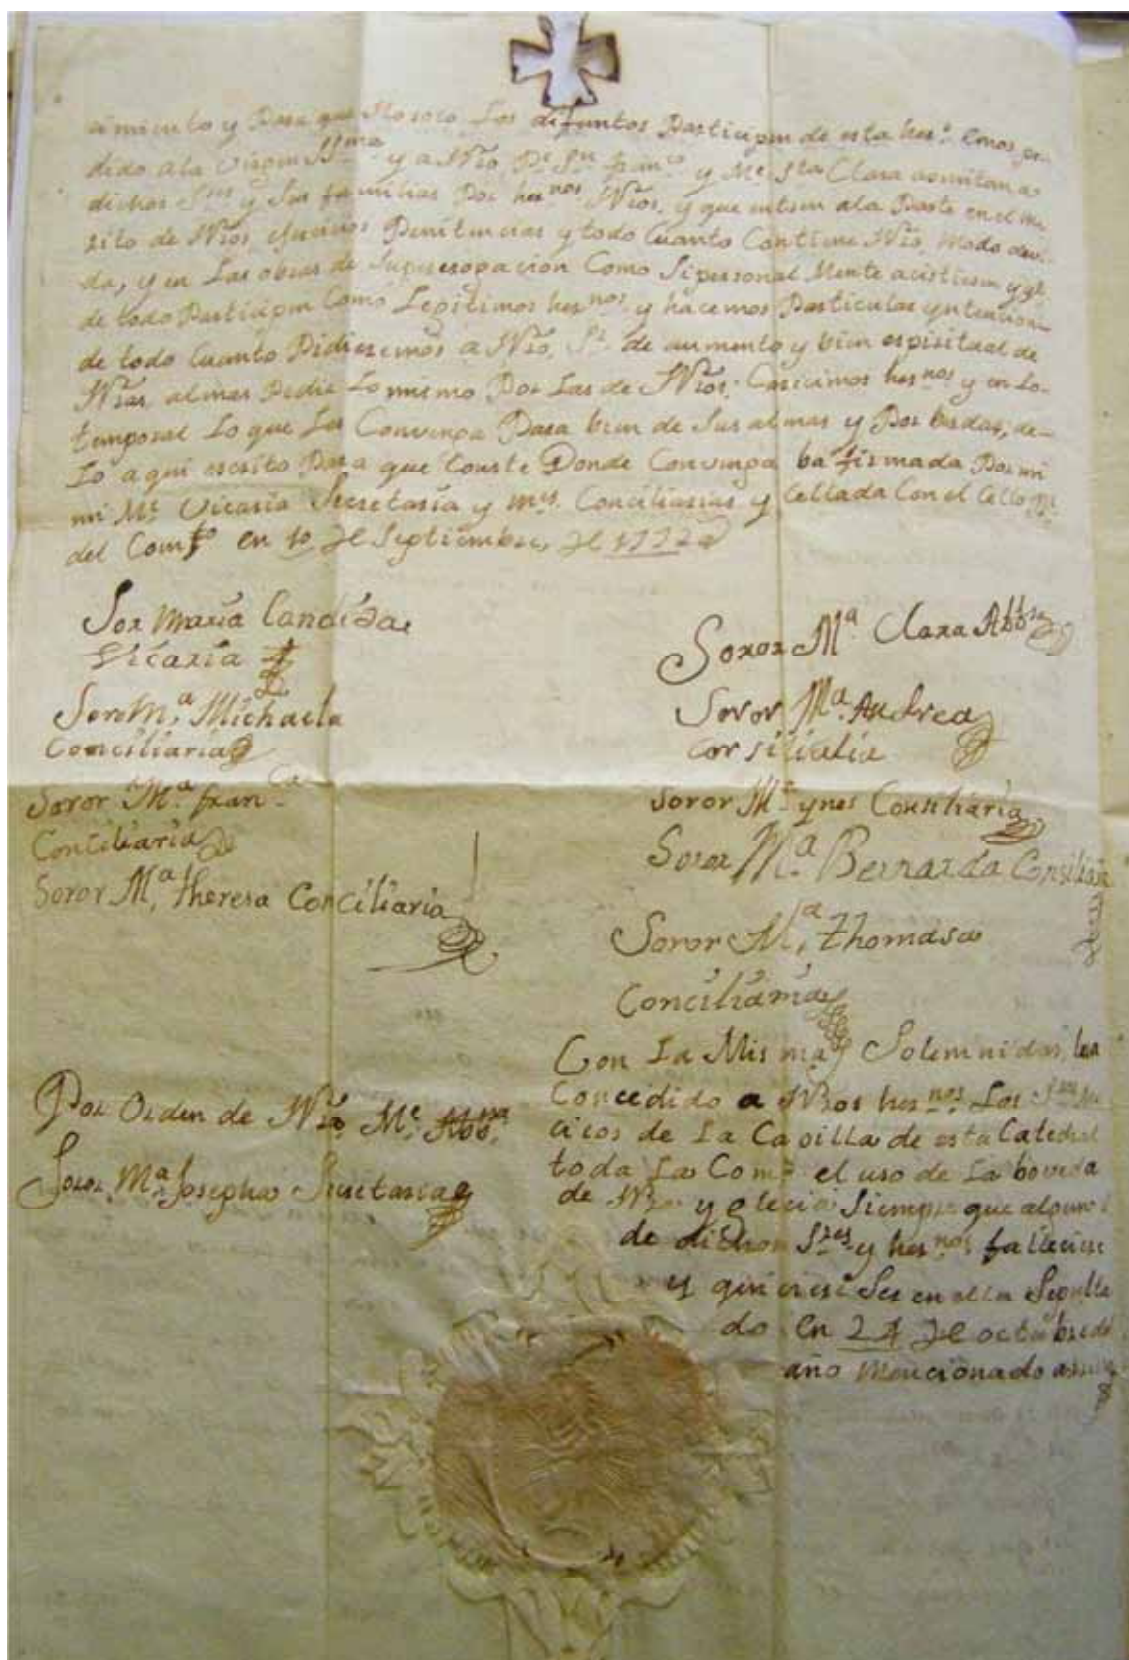 cimiento y Para que No solo Los difuntos Participen de esta her.ᵈ emos pe-
dido ala Virgen Sᵐᵃ y a Nrõ Pᵉ Sⁿ franᶜᵒ y Mᵉ Sᵗᵃ Clara admitan a
dichos Sʳᵉˢ y Sus familias Por herⁿᵒˢ Nrõs, y que entren ala Parte en el me-
rito de Nrõs, exercicios Penitencias y todo Cuanto Contiene Nrõ, modo de vi-
da, y en Las obras de Supererogacion Como Si personal Mente acistiesen y qᵉ
de todo Participen Como Legitimos herⁿᵒˢ, y hacemos Particular yntencion
de todo Cuanto Pidieremos a Nrõ, Sʳ de aumento y bien espiritual de
Nrãs, almas Pedir Lo mismo Por Las de Nrõs, Caricimos herⁿᵒˢ y en Lo-
temporal Lo que Les Convenga Para bien de Sus almas y Por berdad, de-
Lo aqui escrito Para que Conste Donde Convenga ba firmada Por mi
mi Mᵉ Vicaria Secretaria y mˢ. Conciliarias y Cellada Con el Cello
del Comᵗᵒ en 10 de Septiembre, de
Sor Maria Candida
Vicaria
Soror Mᵃ Clara Abbˢᵃ
Soror Mᵃ, Michaela
Conciliaria
Soror Mᵃ. Andrea
Corsilialia
Soror Mᵃ franᶜᵃ
Conciliaria
Soror Mᵃ ynes Consiliaria
Soror Mᵃ. Bernarda Consiliaria
Soror Mᵃ, theresa Conciliaria
Soror Mᵃ, thomasa
Conciliaria
Por Orden de Nrã Mᵉ Abbˢᵃ
Soror, Mᵃ Josepha Secretaria
Con La Misma Solemnidad, ha
Concedido a Nros herⁿᵒˢ Los Sʳᵉˢ Mu
cicos de La Capilla de esta Catedral
toda La Comᵈ el uso de La boveda
de Nra yglecia Siempre que alguno
de dichos Sʳᵉˢ y herⁿᵒˢ falleciere
y quiciere Ser en ella Sepulta
do en 24 de octubre del
año Mencionado